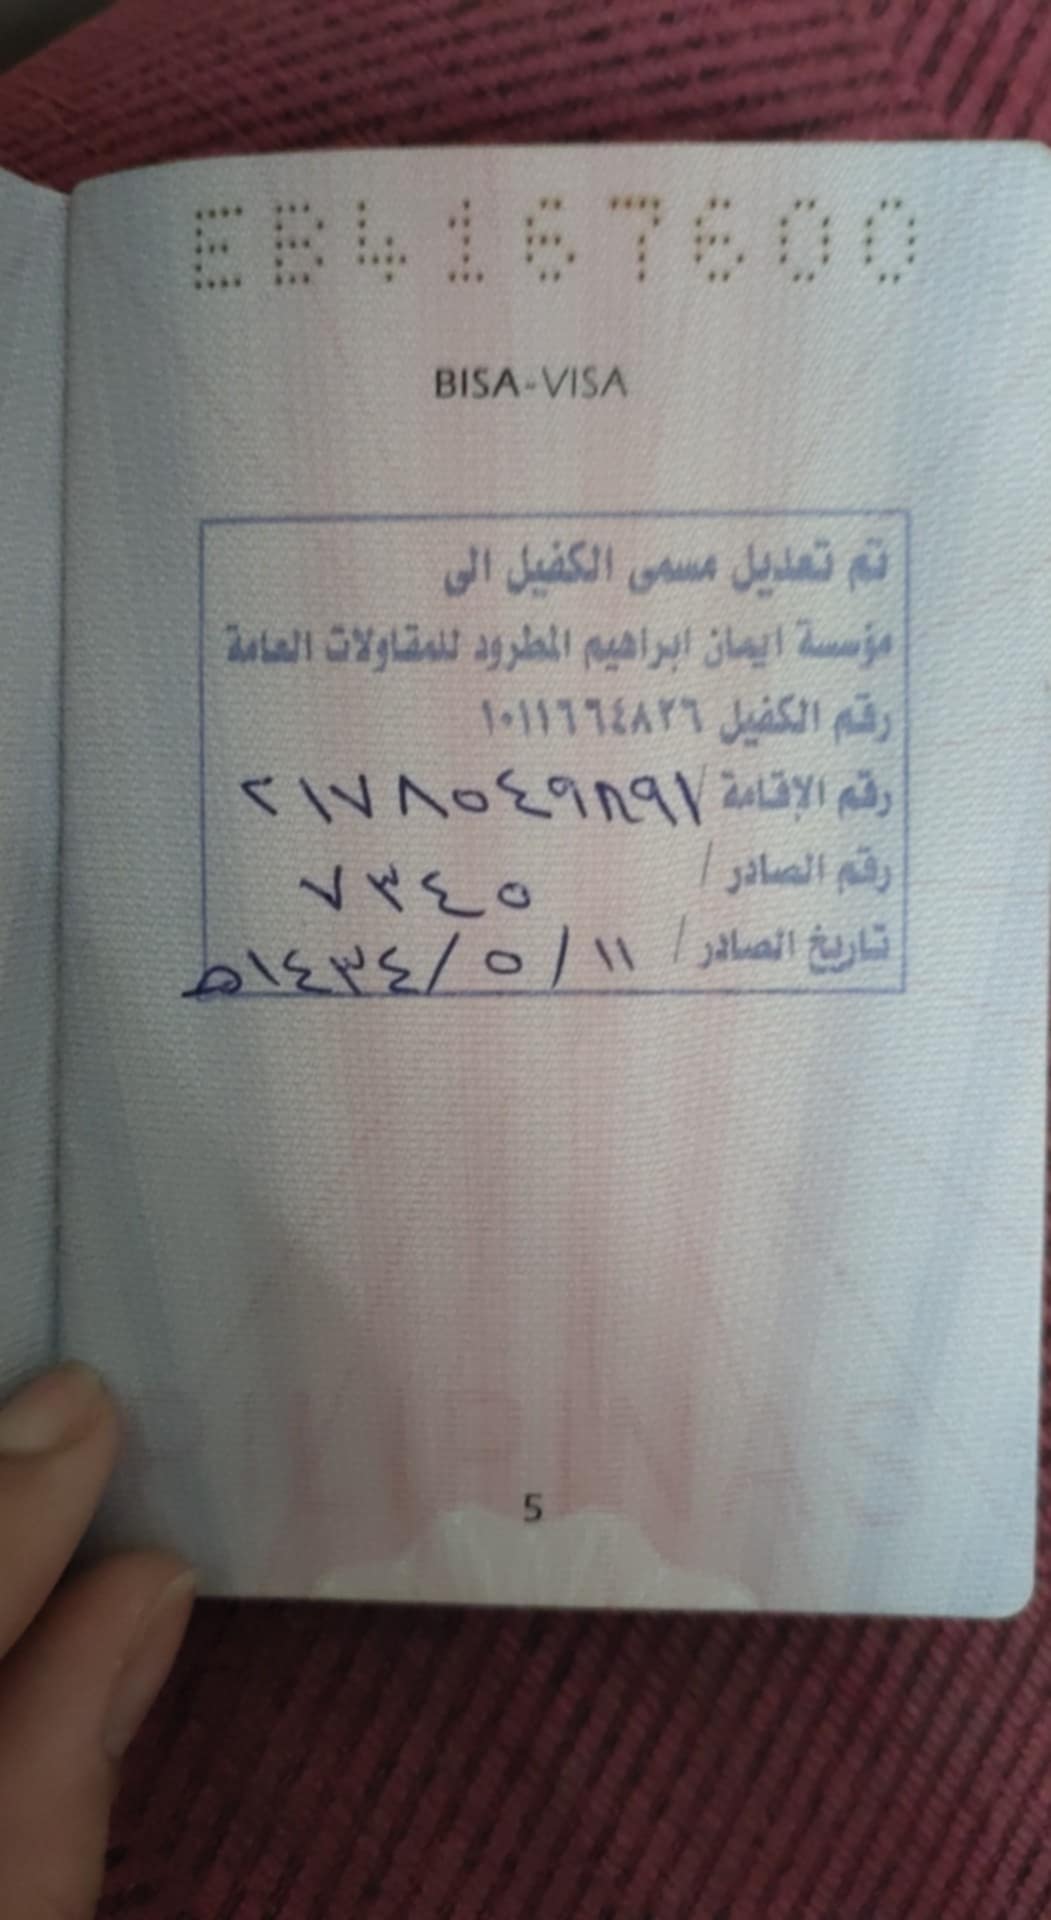 EB4167600
BISA-VISA
تم تعديل مسمى الكفيل الى
مؤسسة ايمان ابراهيم المطرود للمقاولات العامة
رقم الكفيل ١٠١١٦٦٤٨٢٦
رقم الإقامة / ٢١٧٨٥٤٩٨٩١
رقم الصادر / ٧٣٤٥
تاريخ الصادر / ١١ / ٥ / ١٤٣٤هـ
5